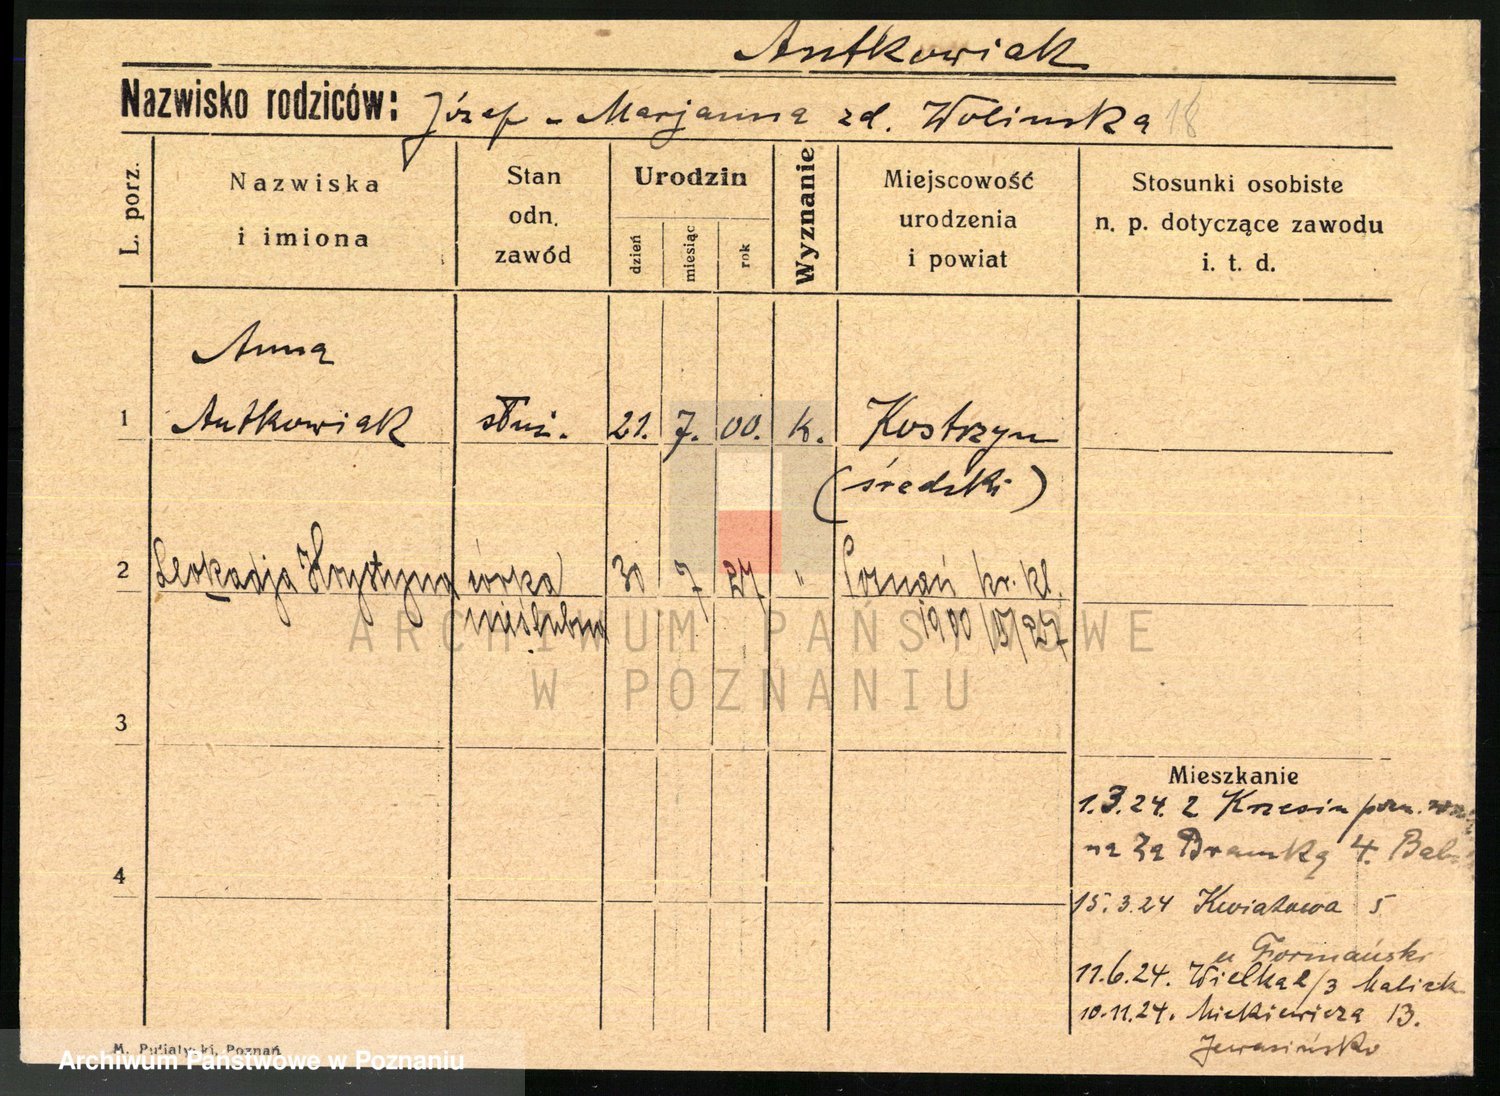 Antkowiak
Nazwisko rodziców: Józef - Marjanna zd. Wolinska 18
L. porz.
Nazwiska
i imiona
Stan
odn.
zawód
Urodzin
dzień
miesiąc
rok
Wyznanie
Miejscowość
urodzenia
i powiat
Stosunki osobiste
n. p. dotyczące zawodu
i. t. d.
Anna
1 Antkowiak służ. 21. 7. 00. k. Kostrzyn
(średzki)
2 Leokadja Krystyna córka 30 7 27 " Poznań kr. kl.
nieślubna 1900/15/27
ARCHIWUM PAŃSTWOWE
W POZNANIU
3
Mieszkanie
1.3.24. z Krzesin pozn.
na Za Bramką 4.
4
15.3.24 Kwiatowa 5
u
11.6.24. Wielka 2/3
10.11.24. Mickiewicza 13.
M. Putiatycki, Poznań
Archiwum Państwowe w Poznaniu